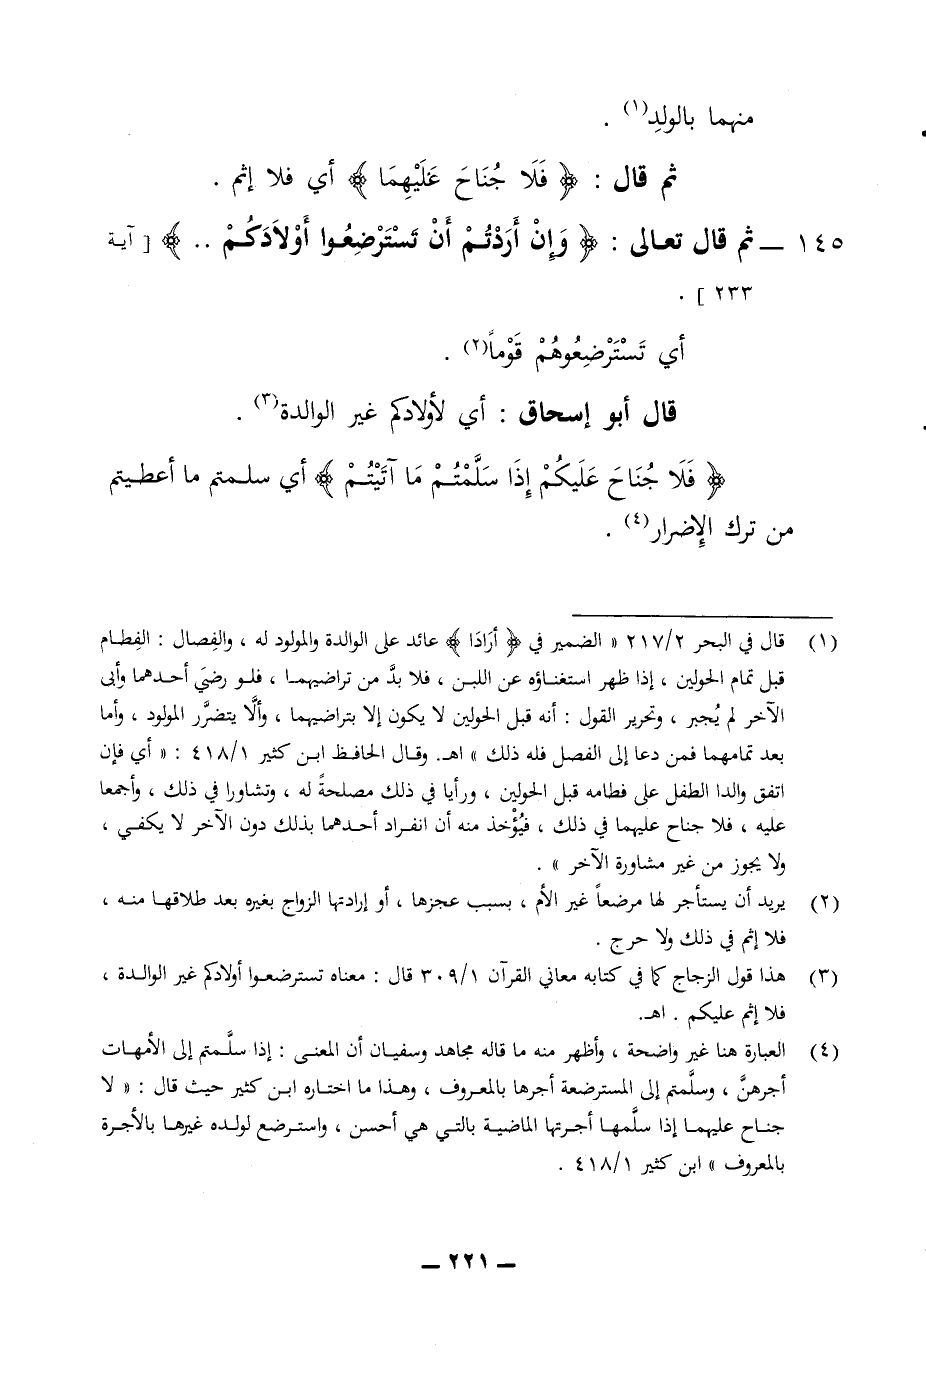 منهما بالولدِ(١) .
ثم قال : ﴿ فَلَا جُنَاحَ عَلَيْهِمَا ﴾ أي فلا إثم .
١٤٥ ــ ثم قال تعالى : ﴿ وَإِنْ أَرَدْتُمْ أَنْ تَسْتَرْضِعُوا أَوْلَادَكُمْ .. ﴾ [ آية
٢٣٣ ] .
أي تَسْتَرْضِعُوهُمْ قَوْماً(٢) .
قال أبو إسحاق : أي لأولادكم غير الوالدة(٣) .
﴿ فَلَا جُنَاحَ عَلَيكُمْ إِذَا سَلَّمْتُمْ مَا آتَيْتُمْ ﴾ أي سلمتم ما أعطيتم
من ترك الإضرار(٤) .
(١) قال في البحر ٢١٧/٢ « الضمير في ﴿ أَرَادَا ﴾ عائد على الوالدة والمولود له ، والفِصال : الفِطام
قبل تمام الحولين ، إذا ظهر استغناؤه عن اللبن ، فلا بدَّ من تراضيهما ، فلو رضيَ أحدهما وأبى
الآخر لم يُجبر ، وتحرير القول : أنه قبل الحولين لا يكون إلا بتراضيهما ، وألَّا يتضرَّر المولود ، وأما
بعد تمامهما فمن دعا إلى الفصل فله ذلك » اهـ. وقال الحافظ ابن كثير ٤١٨/١ : « أي فإن
اتفق والدا الطفل على فطامه قبل الحولين ، ورأيا في ذلك مصلحةً له ، وتشاورا في ذلك ، وأجمعا
عليه ، فلا جناح عليهما في ذلك ، فيُؤْخذ منه أن انفراد أحدهما بذلك دون الآخر لا يكفي ،
ولا يجوز من غير مشاورة الآخر » .
(٢) يريد أن يستأجر لها مرضعاً غير الأم ، بسبب عجزها ، أو إرادتها الزواج بغيره بعد طلاقها منه ،
فلا إثم في ذلك ولا حرج .
(٣) هذا قول الزجاج كما في كتابه معاني القرآن ٣٠٩/١ قال : معناه تسترضعوا أولادكم غير الوالدة ،
فلا إثم عليكم . اهـ.
(٤) العبارة هنا غير واضحة ، وأظهر منه ما قاله مجاهد وسفيان أن المعنى : إذا سلَّمتم إلى الأمهات
أجرهنَّ ، وسلَّمتم إلى المسترضعة أجرها بالمعروف ، وهذا ما اختاره ابن كثير حيث قال : « لا
جناح عليهما إذا سلَّمها أجرتها الماضية بالتي هي أحسن ، واسترضع لولده غيرها بالأجرة
بالمعروف » ابن كثير ٤١٨/١ .
ــ ٢٢١ ــ